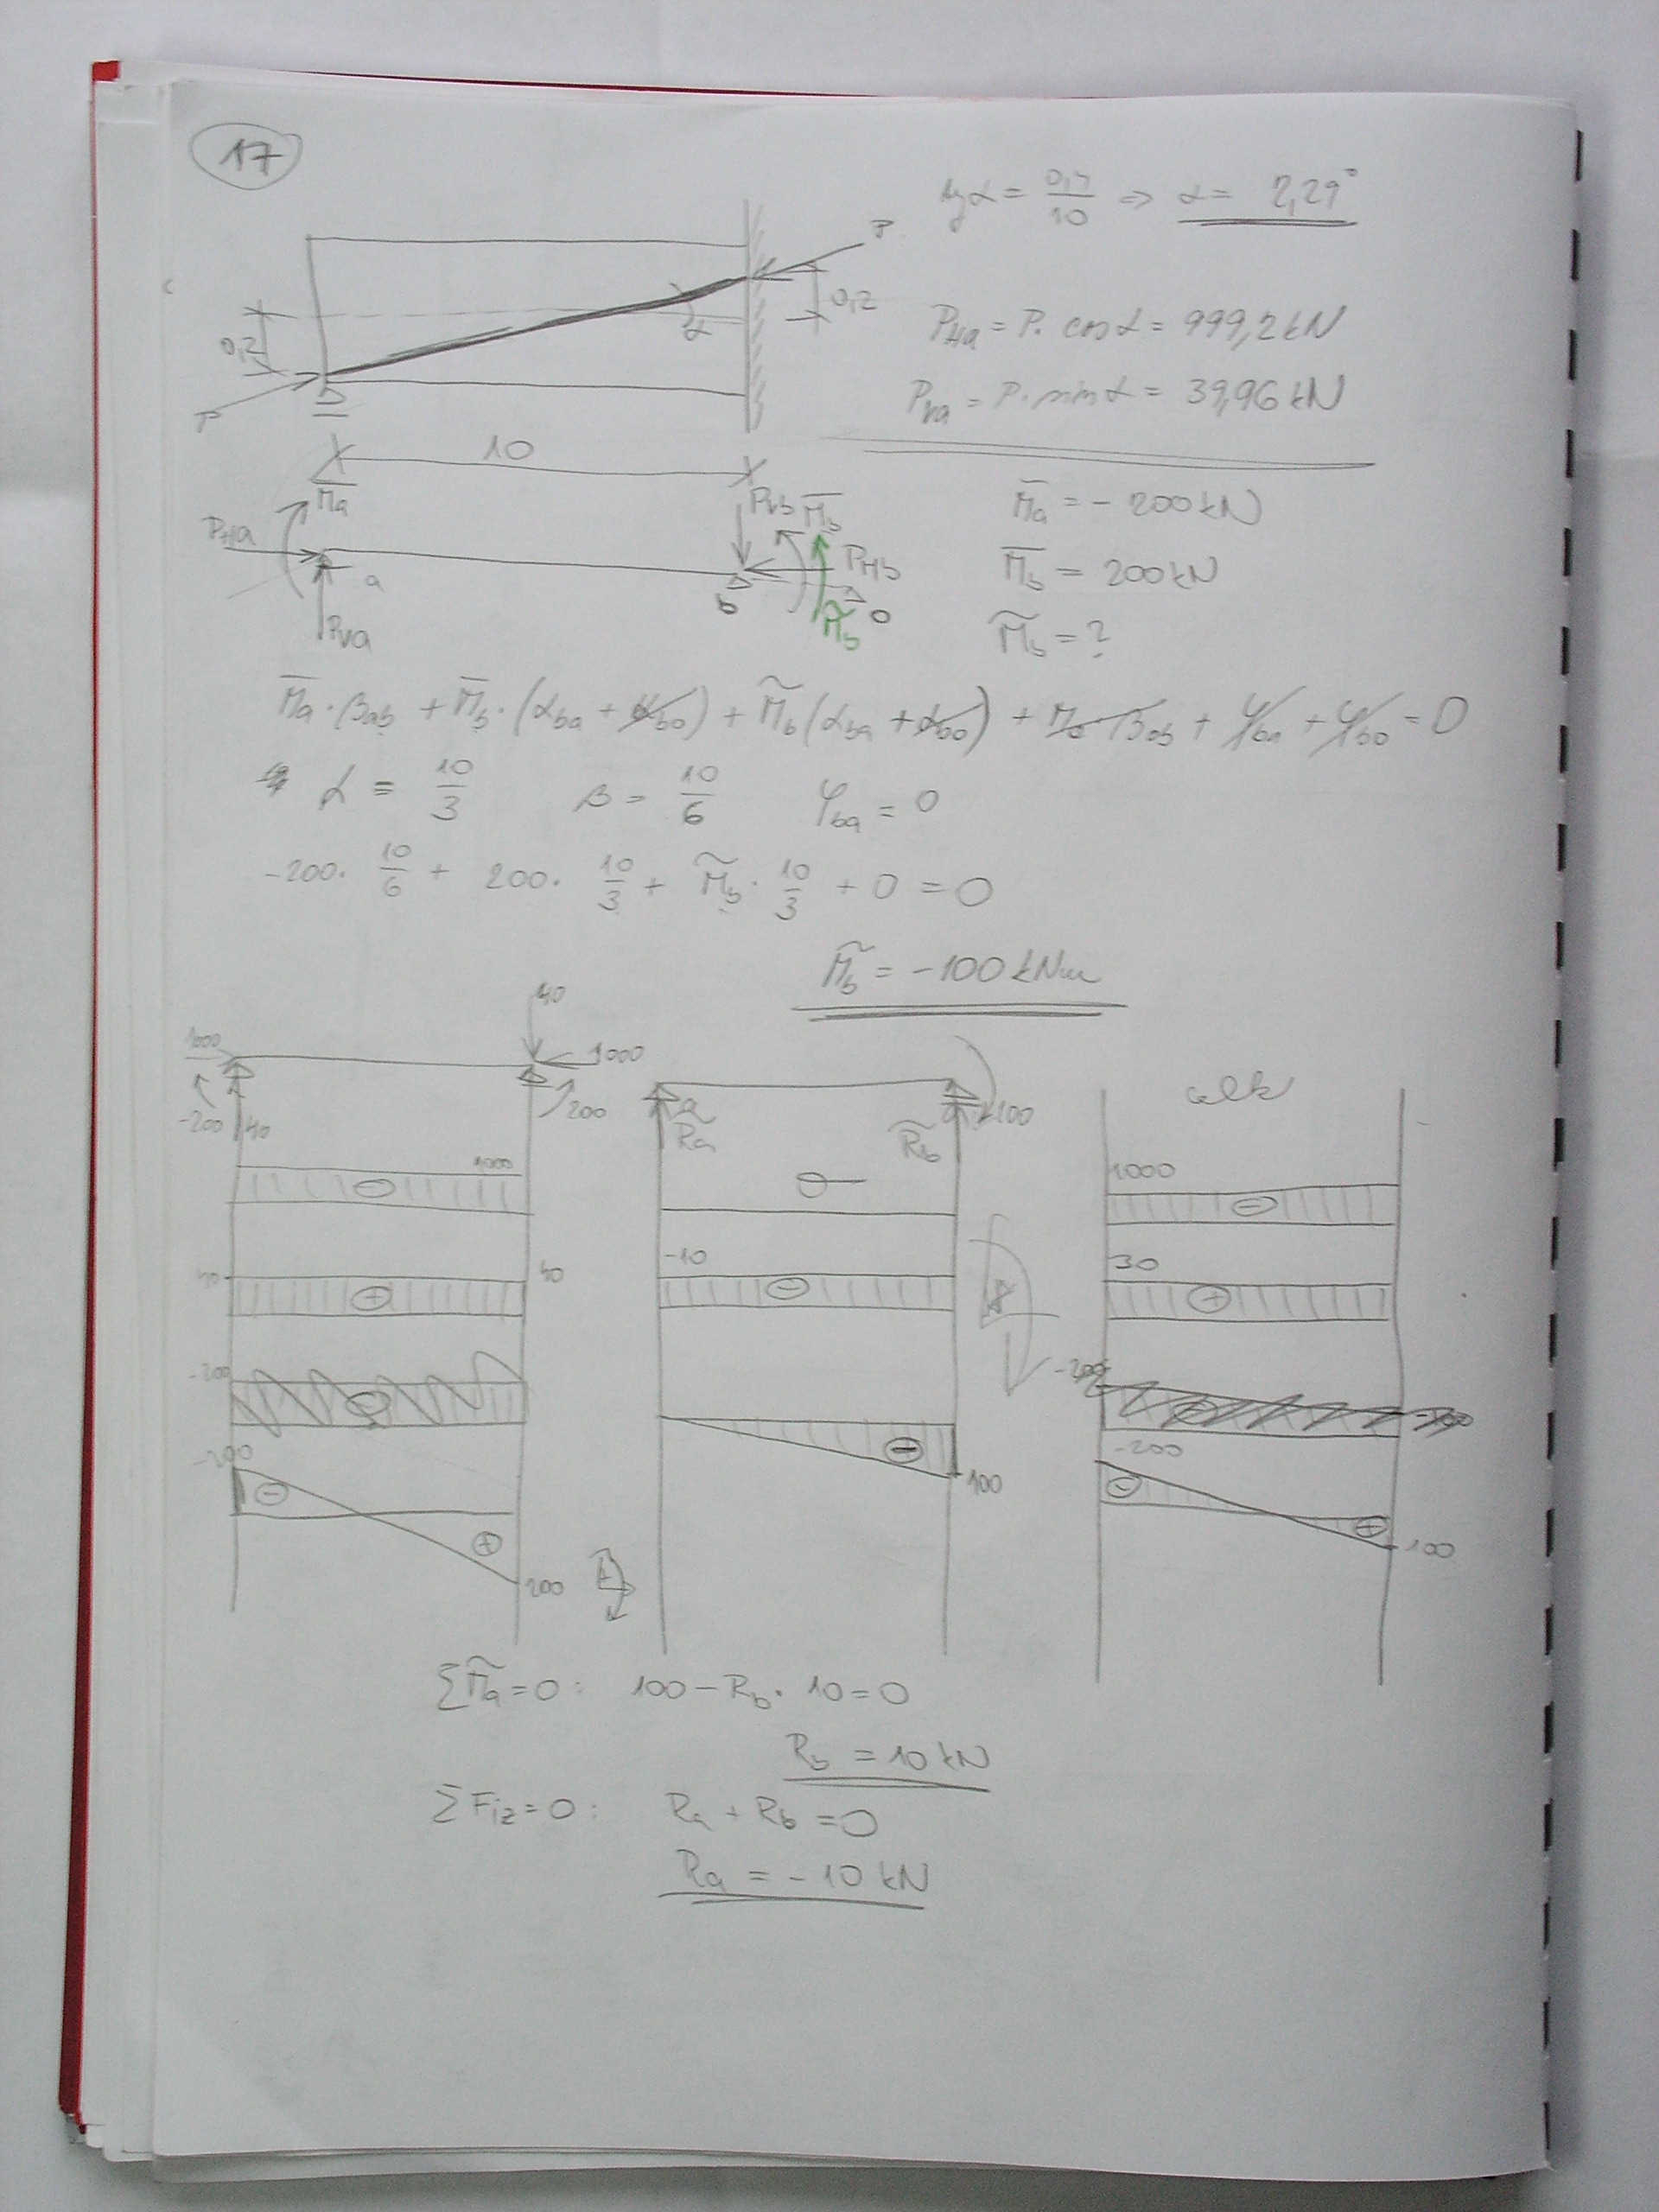 17
tgα = 0,4/10 ⇒ α = 2,29°
P
0,2
α
0,2
P
P_Ha = P · cos α = 999,2 kN
P_Va = P · sin α = 39,96 kN
10
M̄a
P_Ha
a
P_Va
P_Vb M̄b
P_Hb
b
M̃b
0
M̄a = - 200 kN
M̄b = 200 kN
M̃b = ?
M̄a · βab + M̄b · (αba + αbo) + M̃b (αba + αbo) + Mo · βob + φba + φbo = 0
α = 10/3 β = 10/6 φba = 0
-200 · 10/6 + 200 · 10/3 + M̃b · 10/3 + 0 = 0
M̃b = -100 kNm
40
1000
1000
-200
40
200
a
R̃a
R̃b
100
celk
1000
1000
40
40
-10
30
-200
-200
-200
-200
200
100
100
ΣM̃a = 0 : 100 - Rb · 10 = 0
Rb = 10 kN
ΣFiz = 0 : Ra + Rb = 0
Ra = - 10 kN